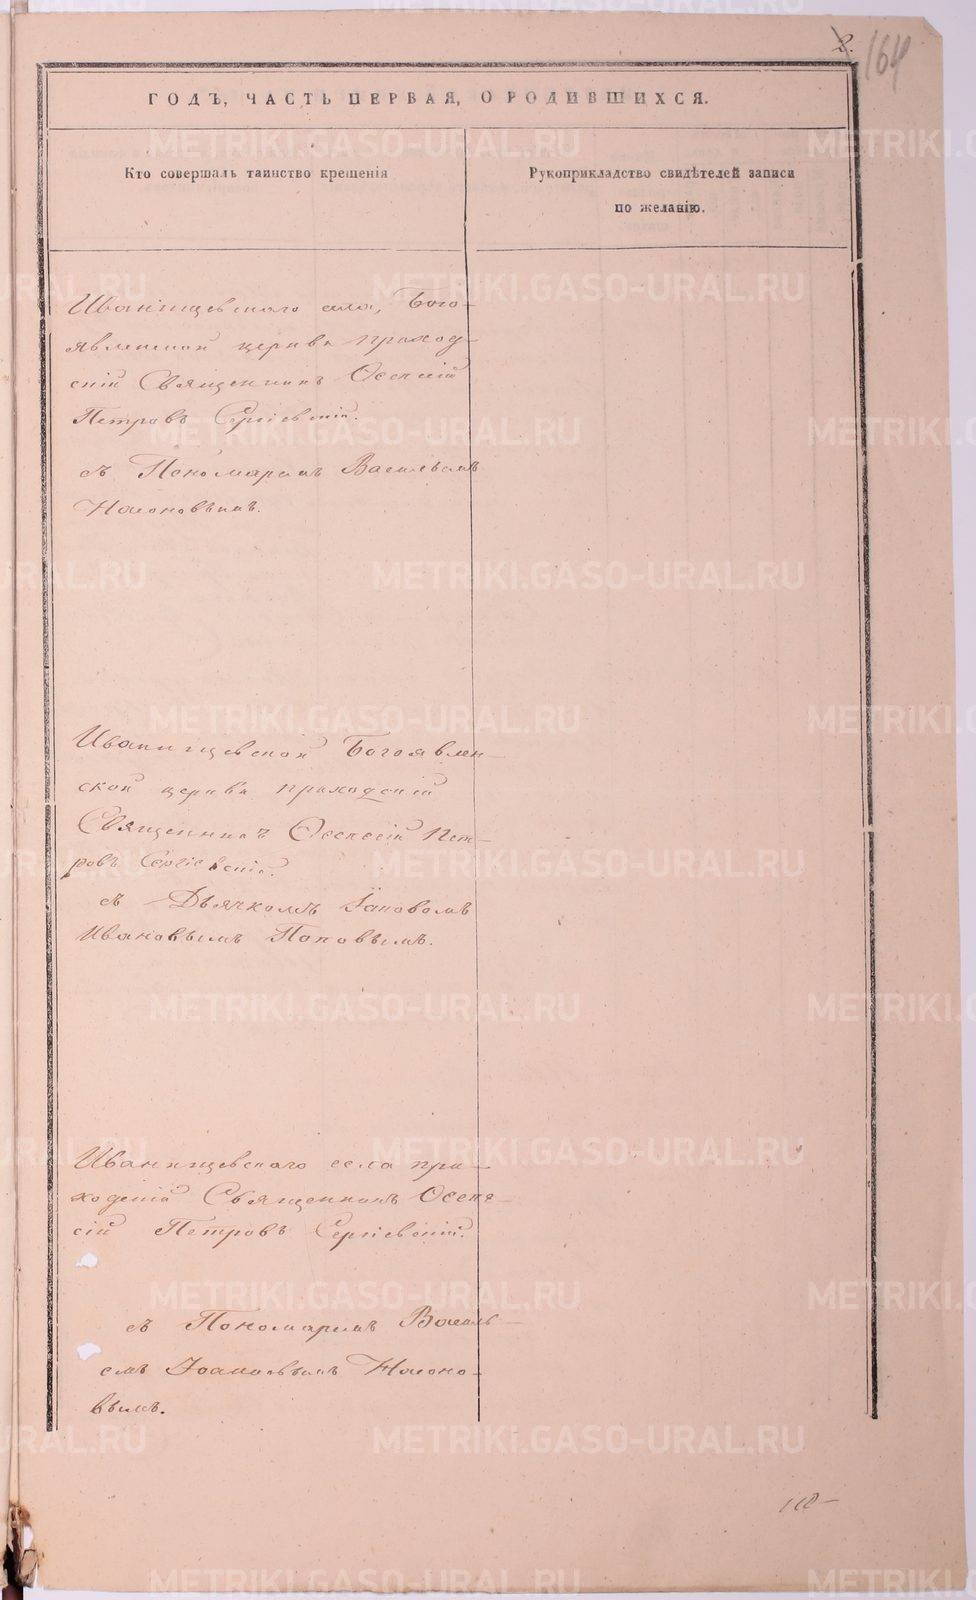 2.
164
ГОДЪ, ЧАСТЬ ПЕРВАЯ, О РОДИВШИХСЯ.
Кто совершалъ таинство крещенія
Рукоприкладство свидѣтелей записи
по желанію.
Иванищевскаго села, Бого-
явленской церкви приход-
скій Священникъ
Петровъ Сергіевскій.
съ Пономаремъ Васильемъ
Иванищевской Богоявлен-
ской церкви приходскій
Священникъ Пет-
ровъ Сергіевскій.
съ Дьячкомъ
Ивановымъ Поповымъ.
Иванищевскаго села при-
ходскій Священникъ
Петровъ Сергіевскій.
съ Пономаремъ Василь-
емъ
вымъ.
METRIKI.GASO-URAL.RU